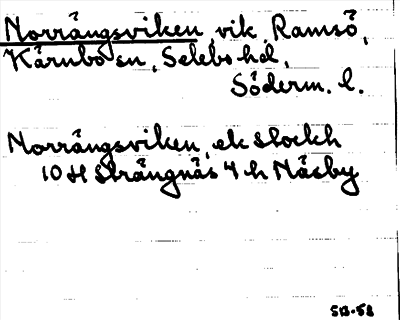 Norrängsviken, vik, Ramsö,
Kärnbo sn, Selebo hd,
Söderm. l.
Norrängsviken, ek Stockh
10 H Strängnäs 4 h Näsby
SB.58